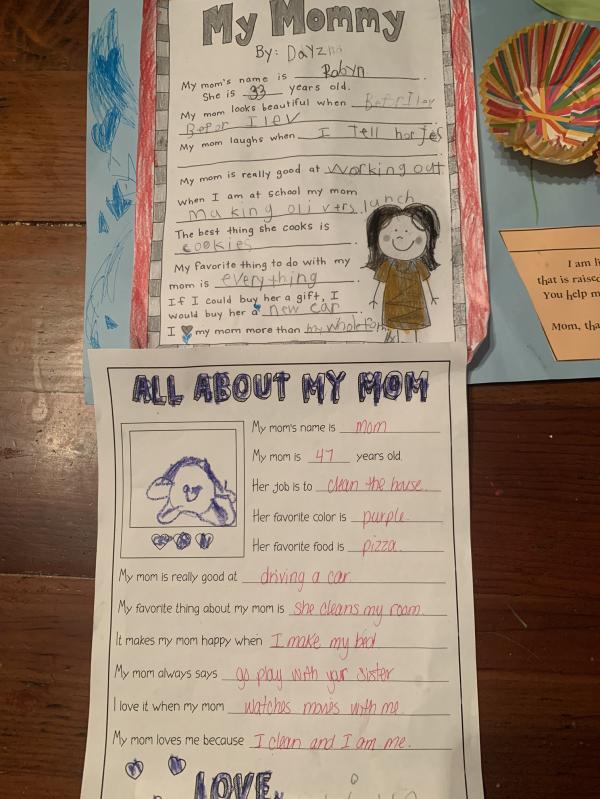 My Mommy
By: Dayzha
My mom's name is Robyn.
She is 33 years old.
My mom looks beautiful when Befor I lev
Befor I lev
My mom laughs when I Tell her Jes
My mom is really good at working out
When I am at school my mom
making olivers lunch
The best thing she cooks is
cookies.
My favorite thing to do with my
mom is everything.
If I could buy her a gift, I
would buy her a new car.
I my mom more than my whole fam
I am li
that is raise
You help m
Mom, tha
ALL ABOUT MY MOM
My mom's name is mom
My mom is 47 years old.
Her job is to clean the house.
Her favorite color is purple.
Her favorite food is pizza.
My mom is really good at driving a car.
My favorite thing about my mom is she cleans my room.
It makes my mom happy when I make my bed
My mom always says go play with your sister
I love it when my mom watches movies with me
My mom loves me because I clean and I am me.
LOVE,